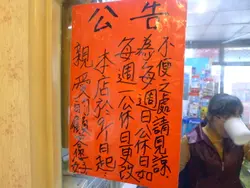 公告
親愛的顧客您好
本店於今日起
每週一公休日更改
為每週日公休日如
不便之處請見諒